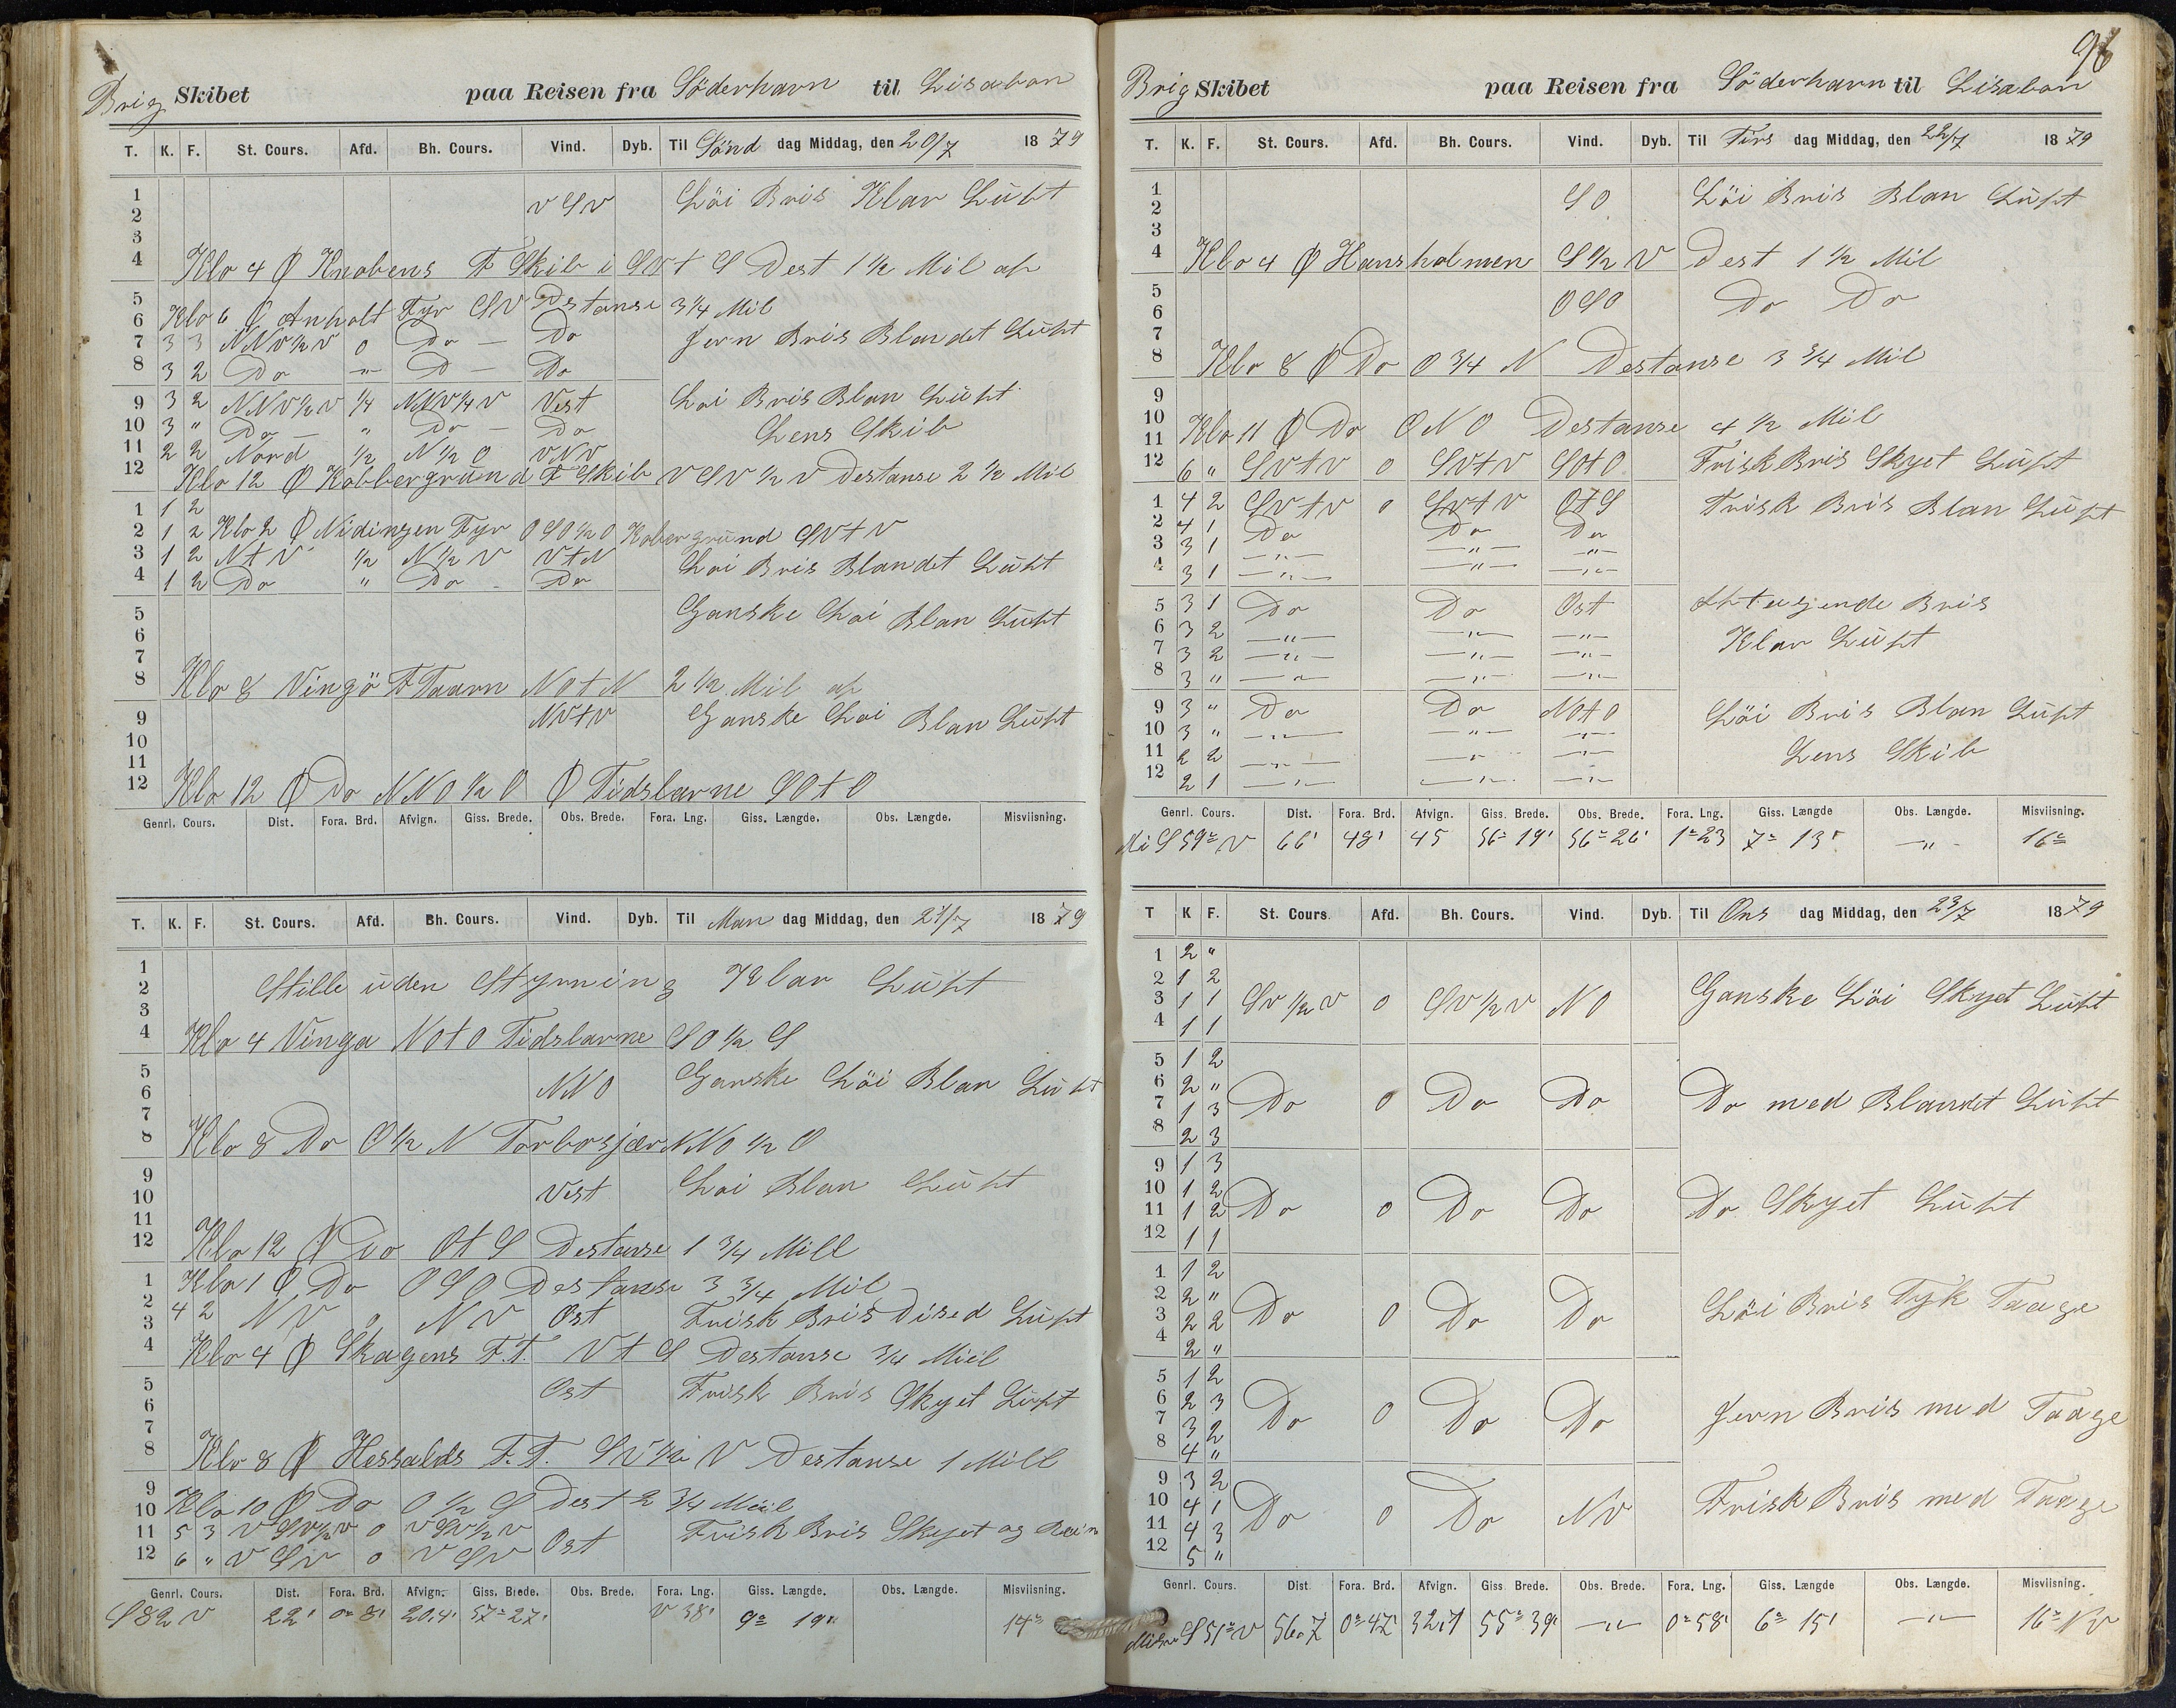 Brig Skibet paa Reisen fra Söderhavn til Lisabon
T. K. F. St. Cours. Afd. Bh. Cours. Vind. Dyb. Til Sönd dag Middag, den 20/7 1879
1
2 V S V Löi Bris Klar Luft
3
4 Klo 4 Ø Knobens F Skib i SV t S Dest 1 1/2 Mil af
5
6 Klo 6 Ø Anholt Fyr SV Destanse 3 1/4 Mil
7 3 3 NNV 1/2 V 0 Do — Do Jevn Bris Blandet Luft
8 3 2 Do — " — D — Do
9 3 2 NNV 1/2 V 1/4 NNV 1/4 V Vest Loi Bris Blan Luft
10 3 " Do — " Do — Do Lens Skib
11 2 2 Nord 1/2 N 1/2 O VNV
12 Klo 12 Ø Kobbergrund F Skib V SV 1/2 V Destanse 2 1/2 Mil
1 1 2
2 1 2 Klo 2 Ø Nidingen Fyr O SO 1/2 O Kobergrund SV t V
3 1 2 N t V 1/2 N 1/2 V V t N Loi Bris Blandet Luft
4 1 2 Do " Do - Do
5 Ganske Loi Blan Luft
6
7
8 Klo 8 Vingö F Taarn NO t N 2 1/2 Mil af
9 NV t V Ganske Loi Blan Luft
10
11
12 Klo 12 Ø Do NNO 1/2 O Ø Tidslarne SO t O
Genrl. Cours. Dist. Fora. Brd. Afvign. Giss. Brede. Obs. Brede. Fora. Lng. Giss. Længde. Obs. Længde. Misviisning.
T. K. F. St. Cours. Afd. Bh. Cours. Vind. Dyb. Til Man dag Middag, den 21/7 1879
1
2 Stille uden Styrning Klar Luft
3
4 Klo 4 Vinga NO t O Tidslarne SO 1/2 S
5
6 NNO Ganske Löi Blan Luft
7
8 Klo 8 Do O 1/2 N NNO 1/2 O
9
10 Vest Loi Blan Luft
11
12 Klo 12 Ø Do O t S Destanse 1 3/4 Mill
1 Klo 1 Ø Do O S O Destanse 3 3/4 Mil
2 4 2 NV 0 NV Ost Frisk Bris Dised Luft
3
4 Klo 4 Ø Skagens F.T. V t S Destanse 3/4 Miil
5 Ost Frisk Bris Skyet Luft
6
7
8 Klo 8 Ø F.T. SV 1/2 V Destanse 1 Mill
9
10 Klo 10 Ø Do O 1/2 S Dest 2 3/4 Miil
11 5 3 V SV 1/2 V 0 V SV 1/2 V Ost Frisk Bris Skyet og
12 6 " V SV 0 V SV
Genrl. Cours. Dist. Fora. Brd. Afvign. Giss. Brede. Obs. Brede. Fora. Lng. Giss. Længde. Obs. Længde. Misviisning.
S 82 V 22' 0° 8' 20.4' 57° 27' V 38' 9° 19' 14°
96
Brig Skibet paa Reisen fra Söderhavn til Lisabon
T. K. F. St. Cours. Afd. Bh. Cours. Vind. Dyb. Til Tirs dag Middag, den 22/7 1879
1
2 SO Löi Bris Blan Luft
3
4 Klo 4 Ø Hansholmen S 1/2 V Dest 1 1/2 Mil
5
6 O SO Do Do
7
8 Klo 8 Ø Do O 3/4 N Destanse 3 3/4 Mil
9
10
11 Klo 11 Ø Do ONO Destanse 4 1/2 Mil
12 6 " SV t V 0 SV t V SO t O Frisk Bris Skyet Luft
1 4 2 SV t V 0 SV t V O t S Frisk Bris Blan Luft
2 4 1 Do Do Do
3 3 1 — " — — " — — " —
4 3 1 — " — — " — — " —
5 3 1 Do Do Ost Bris
6 3 2 — " — — " — — " — Klar Luft
7 3 2 — " — — " — — " —
8 3 " — " — — " — — " —
9 3 " Do Do NO t O Löi Bris Blan Luft
10 3 " — " — — " — — " —
11 2 2 — " — — " — — " — Lens Skib
12 2 1 — " — — " — — " —
Genrl. Cours. Dist. Fora. Brd. Afvign. Giss. Brede. Obs. Brede. Fora. Lng. Giss. Længde Obs. Længde. Misviisning.
Mi S 59° V 66' 48' 45 56° 19' 56° 26' 1° 23 7° 13' — " — 16°
T K F. St. Cours. Afd. Bh. Cours. Vind. Dyb. Til Ons dag Middag, den 23/7 1879
1 2 "
2 1 2
3 1 1 SV 1/2 V 0 SV 1/2 V NO Ganske Löi Skyet Luft
4 1 1
5 1 2
6 2 "
7 1 3 Do 0 Do Do Do med Blandet Luft
8 2 3
9 1 3
10 1 2
11 1 2 Do 0 Do Do Do Skyet Luft
12 1 1
1 1 2
2 2 "
3 2 2 Do 0 Do Do Löi Bris Tyk Taage
4 2 "
5 1 2
6 2 3
7 3 2 Do 0 Do Do Jevn Bris med Taage
8 4 "
9 3 2
10 4 1
11 4 3 Do 0 Do NV Frisk Bris med Taage
12 5 "
Genrl. Cours. Dist Fora. Brd. Afvign. Giss Brede. Obs. Brede. Fora. Lng. Giss. Længde Obs. Længde. Misviisning.
S 51° V 56.7 0° 47' 32.7 55° 39' — " — 0° 58' 6° 15' — " — 16° NV